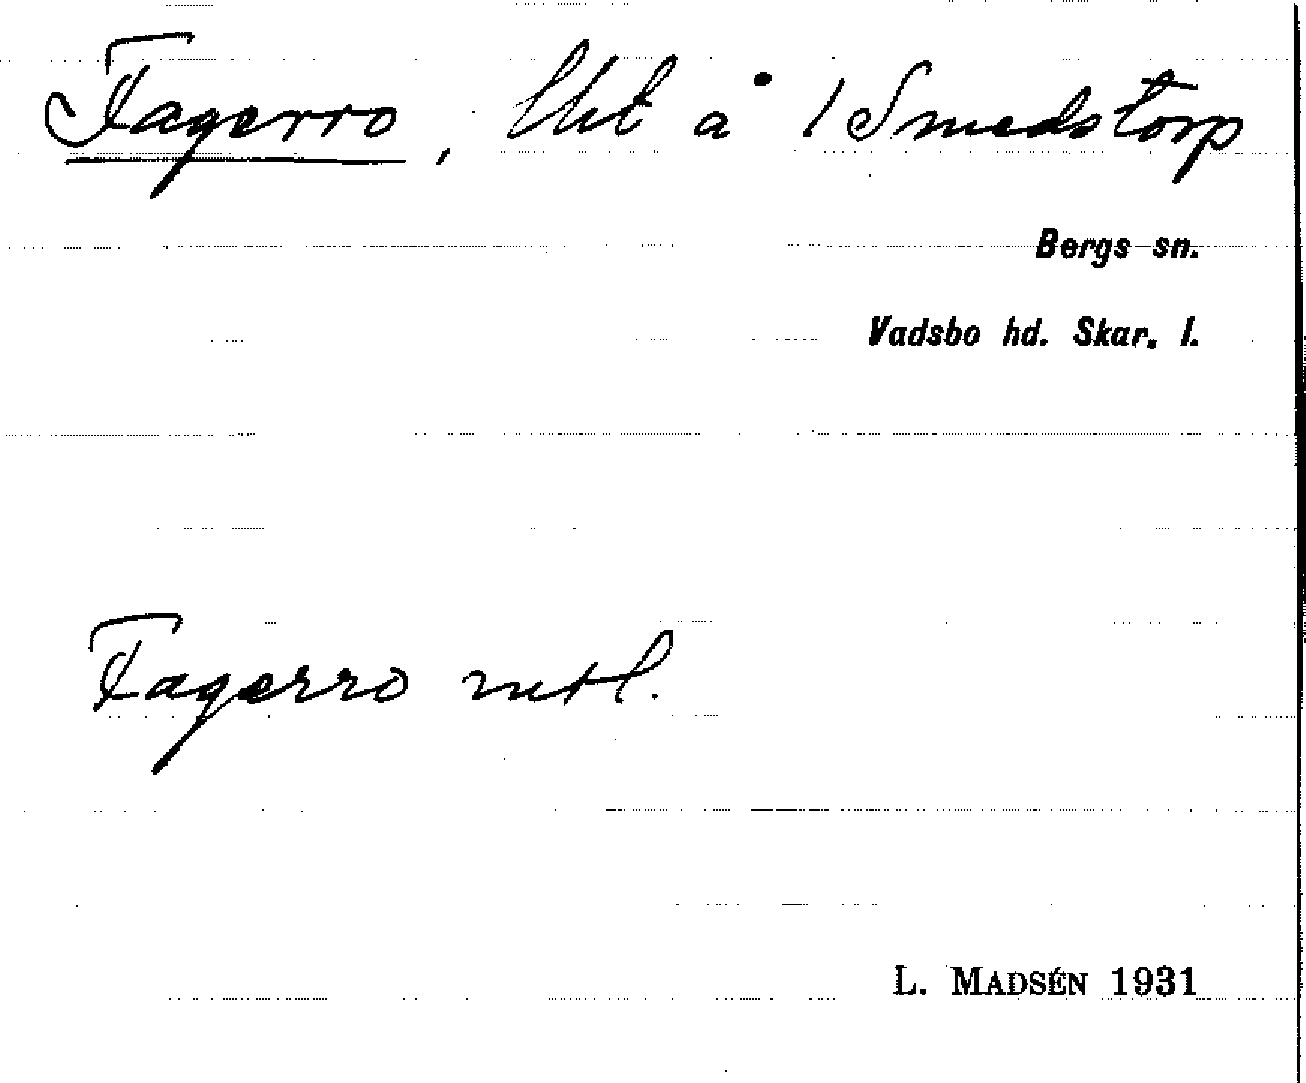 Fagerro, lht å 1 Smedstorp
Bergs sn.
Vadsbo hd. Skar. l.
Fagerro mtl.
L. MADSÉN 1931